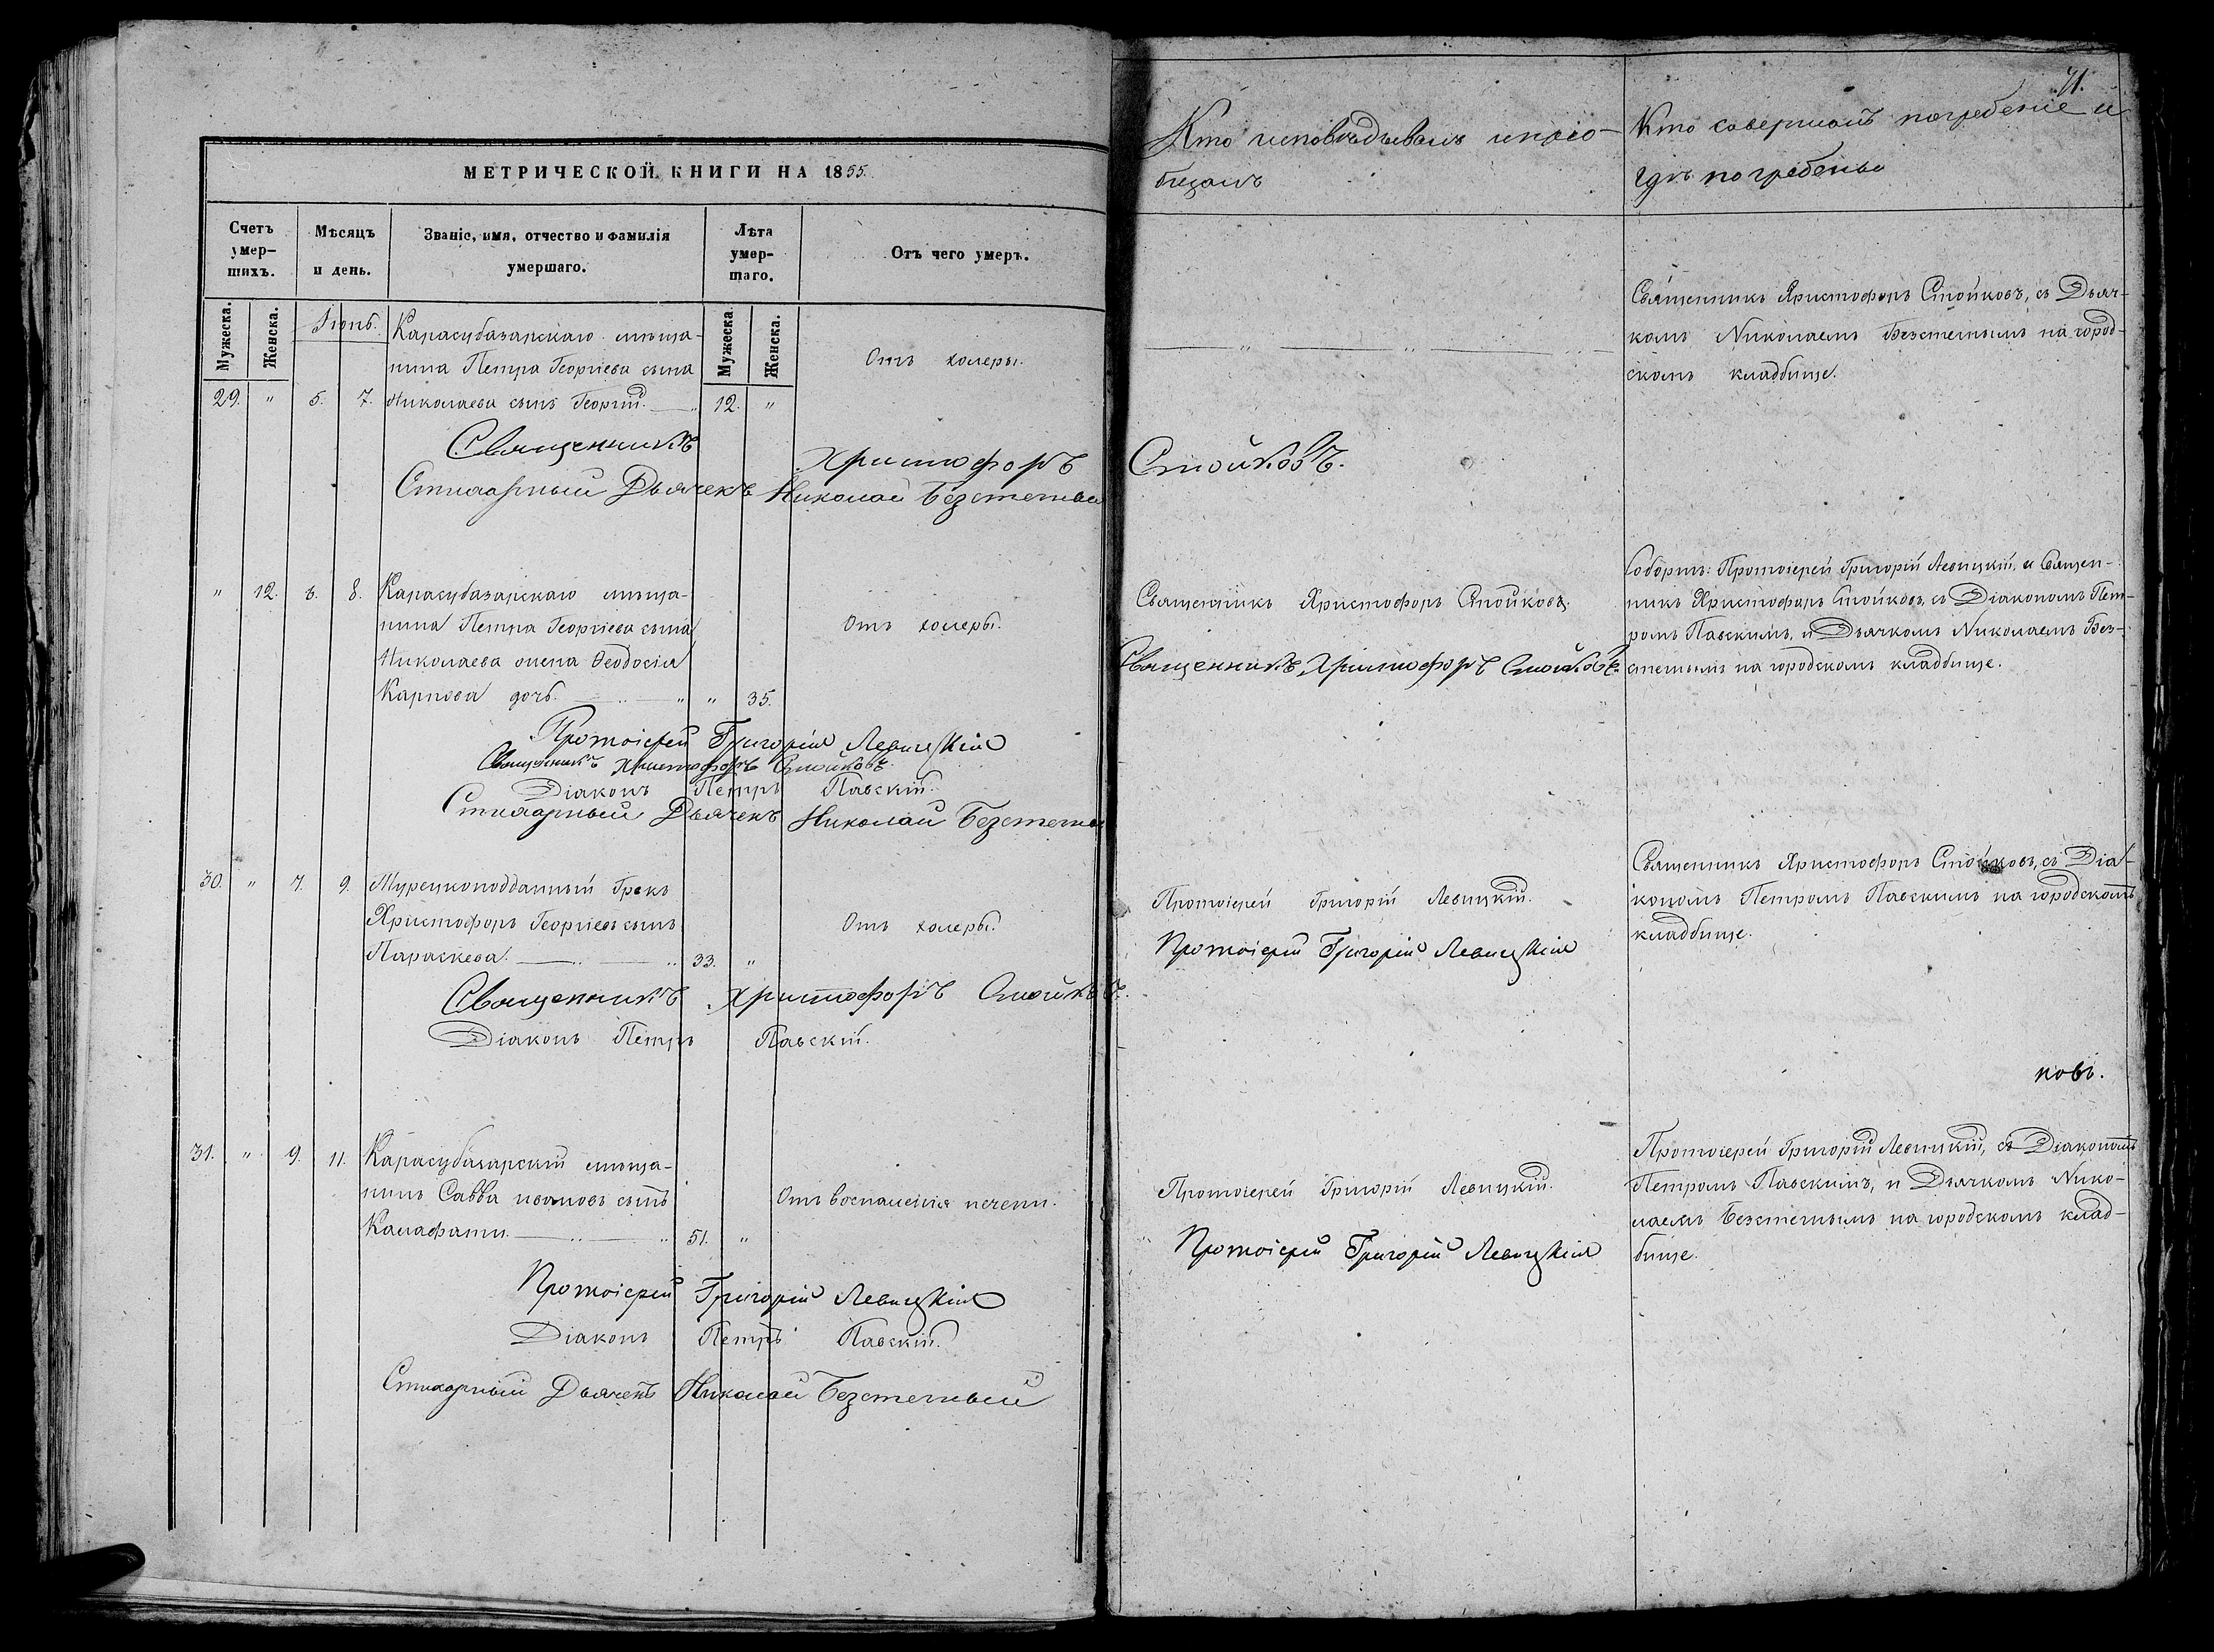 МЕТРИЧЕСКОЙ КНИГИ НА 1855.
Счетъ умер-шихъ.
Мѣсяцъ и день.
Званіе, имя, отчество и фамилія умершаго.
Лѣта умер-шаго.
Отъ чего умеръ.
Мужеска.
Женска.
Мужеска.
Женска.
Іюнь.
Карасубазарскаго мѣща-
нина Петра Георгіева сына
29. " 5. 7. Николаева сынъ Георгій. 12. "
Отъ холеры.
Священникъ Христофоръ
Стихарный Дьячекъ Николай Безстетный
" 12. 6. 8. Карасубазарскаго мѣща-
нина Петра Георгіева сына
Николаева жена Ѳеодосія
Карпова дочь. " 35.
Отъ холеры.
Протоіерей Григорій Левицкій
Священникъ Христофоръ Стойковъ.
Діаконъ Петръ Павскій.
Стихарный Дьячекъ Николай Безстетный
30. " 7. 9. Турецкоподданный Грекъ
Христофоръ Георгіевъ сынъ
Параскева. 33. "
Отъ холеры.
Священникъ Христофоръ Стойковъ.
Діаконъ Петръ Павскій.
31. " 9. 11. Карасубазарскій мѣща-
нинъ Савва Ивановъ сынъ
Калафати. 51. "
Отъ воспаленія печени.
Протоіерей Григорій Левицкій
Діаконъ Петръ Павскій.
Стихарный Дьячекъ Николай Безстетный
71.
Кто исповѣдывалъ и прiо-
бщалъ
Кто совершалъ погребеніе и
гдѣ погребены
Священникъ Христофоръ Стойковъ, съ Дьяч-
комъ Николаемъ Безстетнымъ на город-
скомъ кладбищѣ.
Стойковъ.
Священникъ Христофоръ Стойковъ.
Священникъ Христофоръ Стойковъ.
Соборнѣ: Протоіерей Григорій Левицкій, и Священ-
никъ Христофоръ Стойковъ, съ Діакономъ Пет-
ромъ Павскимъ, и Дьячкомъ Николаемъ Без-
стетнымъ на городскомъ кладбищѣ.
Протоіерей Григорій Левицкій.
Протоіерей Григорій Левицкій
Священникъ Христофоръ Стойковъ, съ Діа-
кономъ Петромъ Павскимъ на городскомъ
кладбищѣ.
ковъ.
Протоіерей Григорій Левицкій.
Протоіерей Григорій Левицкій
Протоіерей Григорій Левицкій, съ Діакономъ
Петромъ Павскимъ, и Дьячкомъ Нико-
лаемъ Безстетнымъ на городскомъ клад-
бищѣ.